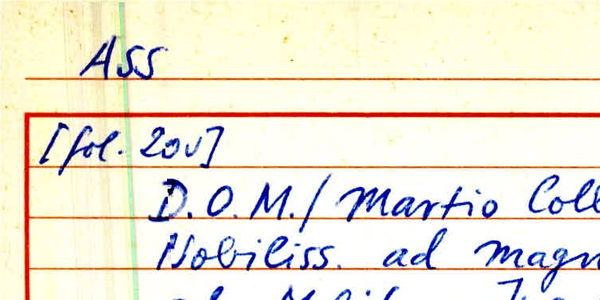 Ass
[fol. 20v]
D.O.M./ Martio Coll
Nobiliss. ad magn